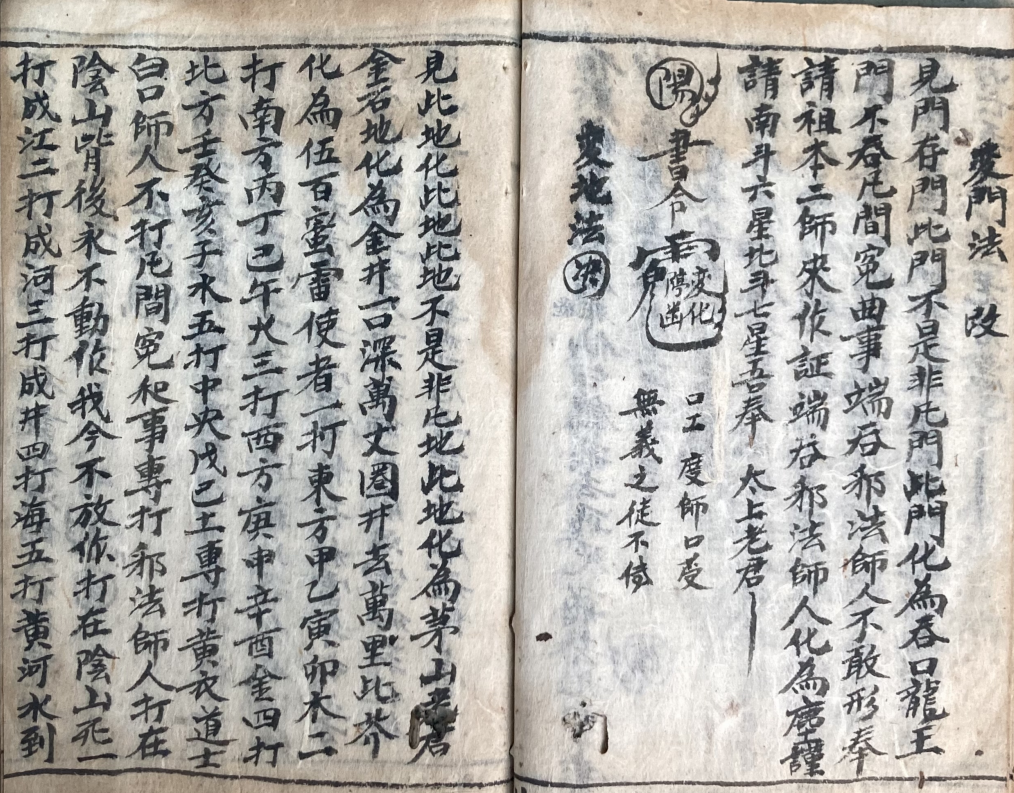 变門法 改
見門存門此門不是非凡門此門化為吞口龍王
門不吞凡間冤曲事端吞邪法師人不敢形奉
請祖本二師來作証端吞邪法師人化為塵謹
請南斗六星北斗七星吾奉 太上老君
口工 度師口受
無義之徒不傳
陽 書令 变化
变地法
見此地化此地此地不是非凡地此地化為茅山老君
金石地化為金井一口深萬丈圈井去萬里比茶
化為伍百蜜雷使者一打東方甲乙寅卯木二
打南方丙丁巳午火三打西方寅申辛酉金四打
北方壬癸亥子水五打中央戊己土專打黃衣道士
白口師人不打凡間冤和事專打邪法師人打在
陰山背後永不動作我今不放你打在陰山死一
打成江二打成河三打成井四打海五打黃河水到